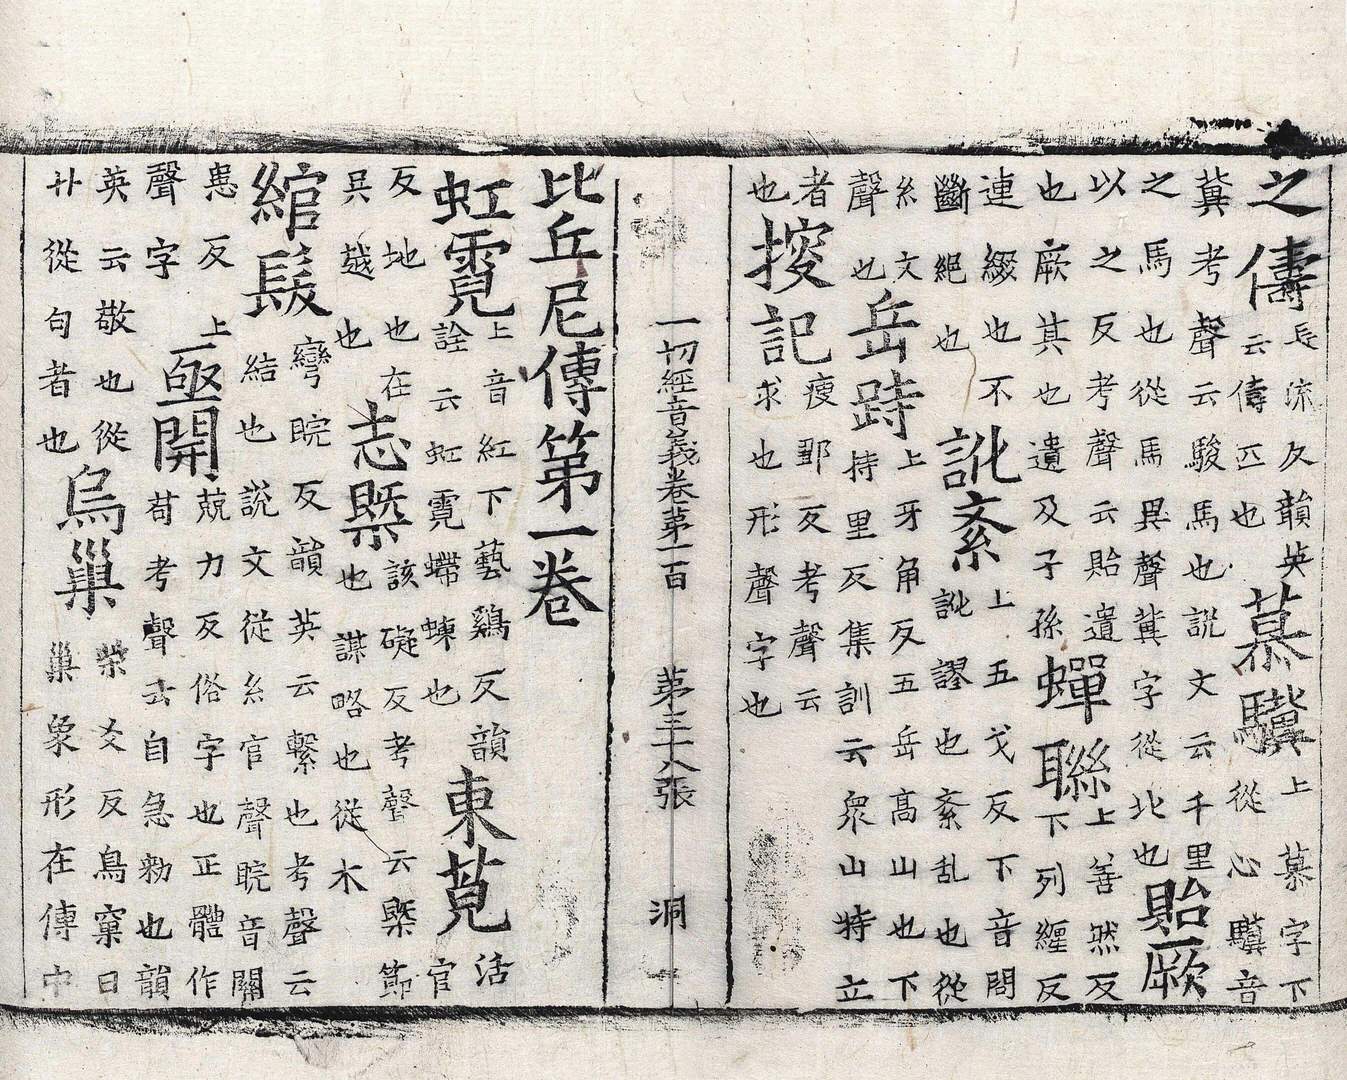 之儔
長流反韻英
云儔匹也
慕驥
上慕字下
從心驥音
冀考聲云駿馬也説文云千里
之馬也從馬異聲冀字從北也
貽厥
以之反考聲云貽遺
也厥其也遺及子孫
蟬聯
上善然反
下列纏反
連綴也不
斷絕也
訛紊
上五戈反下音問
訛謬也紊乱也從
糸文
聲也
岳跱
上牙角反五岳高山也下
持里反集訓云衆山特立
者
也
搜記
瘦鄒反考聲云
求也形聲字也
一切經音義卷第一百 第三十八張 洞
比丘尼傳第一卷
虹霓
上音紅下藝鷄反韻
詮云虹霓䗖蝀也
東莧
活
官
反地也在
吳越也
志槩
該礙反考聲云槩節
也謀略也從木
綰髮
彎睆反韻英云繫也考聲云
結也説文從糸官聲睆音關
患反
上
聲字
亟開
兢力反俗字也正體作
茍考聲云自急勑也韻
英云敬也從
廾從句者也
烏巢
柴爻反鳥窠曰
巢象形在傳中